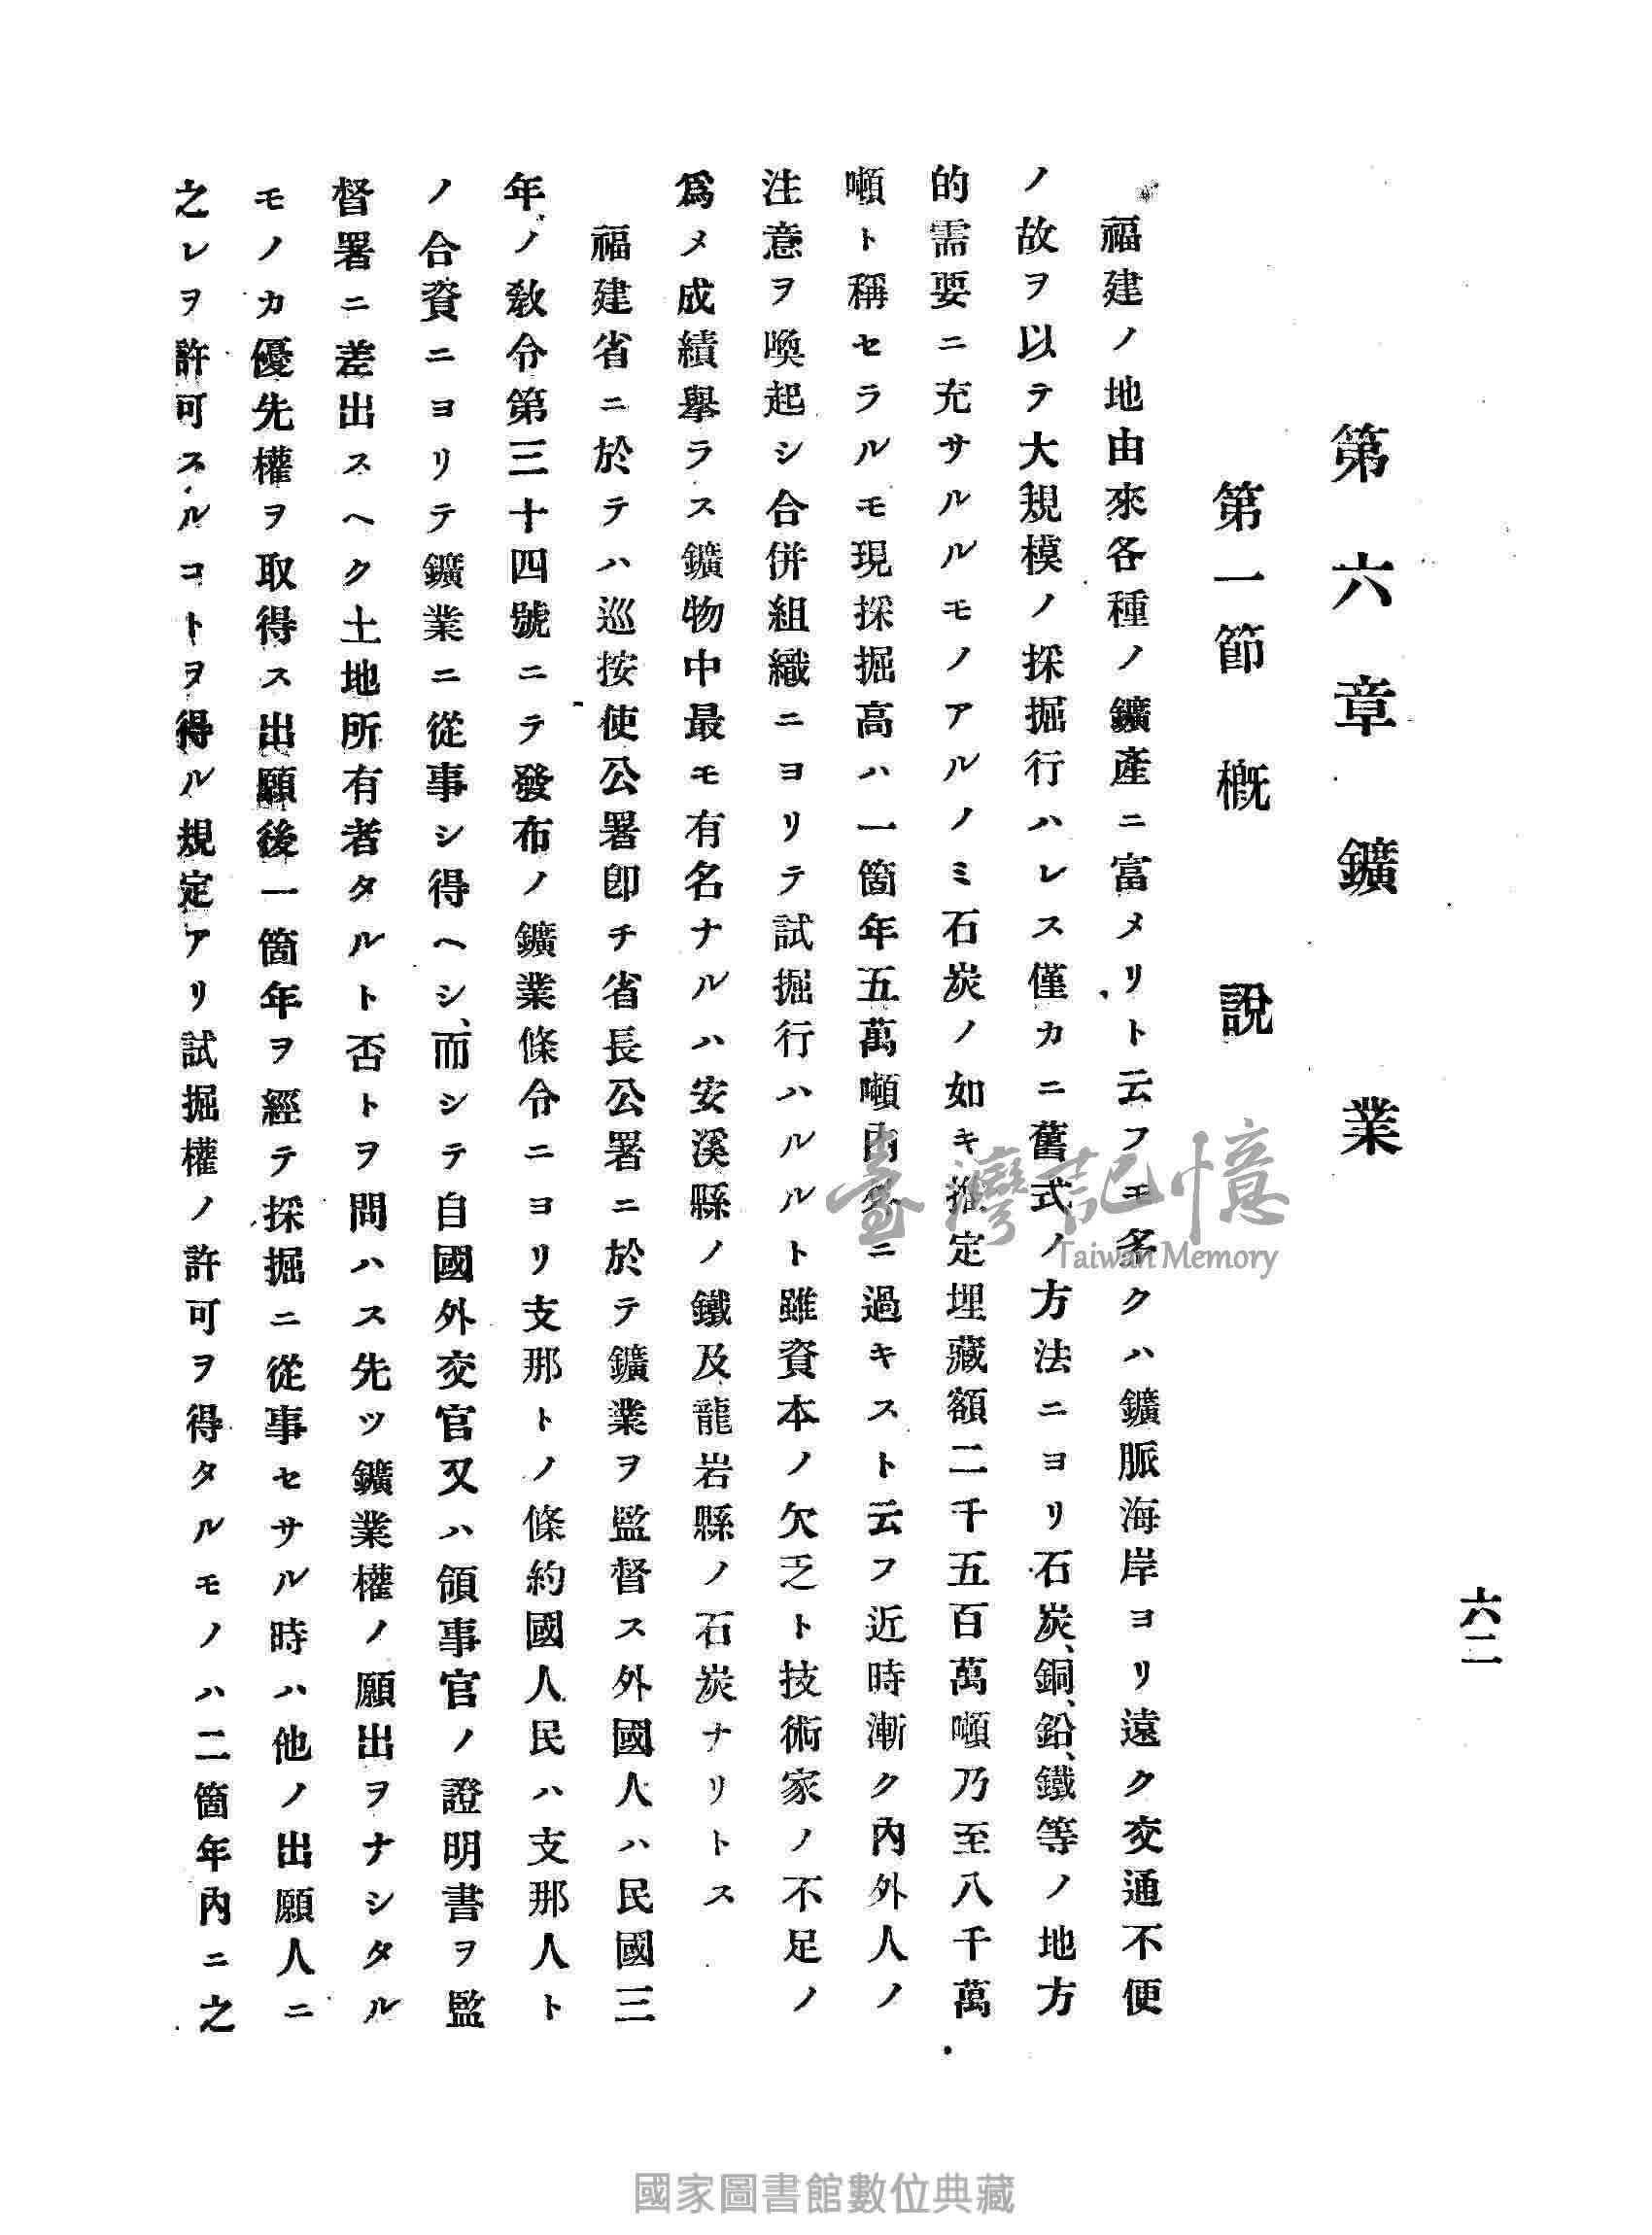 六二
第六章　鑛業
第一節　概說
福建ノ地由來各種ノ鑛產ニ富メリト云フモ多クハ鑛脈海岸ヨリ遠ク交通不便
ノ故ヲ以テ大規模ノ採掘行ハレス僅カニ舊式ノ方法ニヨリ石炭、銅、鉛、鐵等ノ地方
的需要ニ充サルルモノアルノミ石炭ノ如キ推定埋藏額二千五百萬噸乃至八千萬
噸ト稱セラルルモ現採掘高ハ一箇年五萬噸內外ニ過キスト云フ近時漸ク內外人ノ
注意ヲ喚起シ合併組織ニヨリテ試掘行ハルルト雖資本ノ欠乏ト技術家ノ不足ノ
爲メ成績擧ラス鑛物中最モ有名ナルハ安溪縣ノ鐵及龍岩縣ノ石炭ナリトス
福建省ニ於テハ巡按使公署卽チ省長公署ニ於テ鑛業ヲ監督ス外國人ハ民國三
年ノ敎令第三十四號ニテ發布ノ鑛業條令ニヨリ支那トノ條約國人民ハ支那人ト
ノ合資ニヨリテ鑛業ニ從事シ得ヘシ、而シテ自國外交官又ハ領事官ノ證明書ヲ監
督署ニ差出スヘク土地所有者タルト否トヲ問ハス先ツ鑛業權ノ願出ヲナシタル
モノカ優先權ヲ取得ス出願後一箇年ヲ經テ採掘ニ從事セサル時ハ他ノ出願人ニ
之レヲ許可スルコトヲ得ル規定アリ試掘權ノ許可ヲ得タルモノハ二箇年內ニ之
臺灣記憶
Taiwan Memory
國家圖書館數位典藏